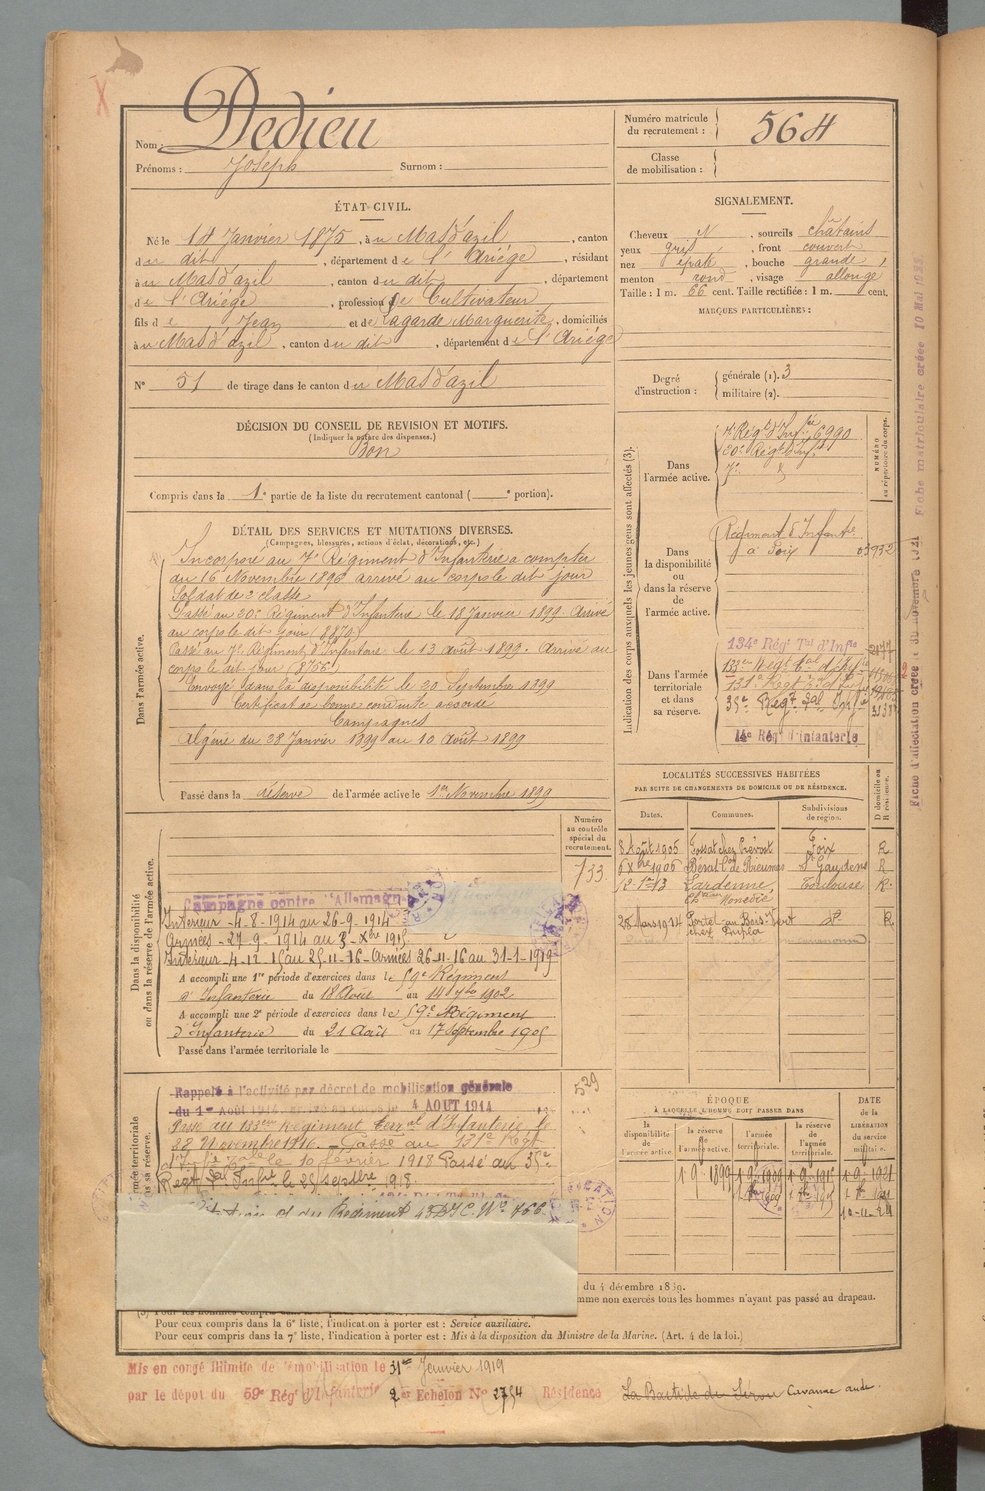 Nom : Dedieu
Prénoms : Joseph Surnom :
Numéro matricule du recrutement : 564
Classe de mobilisation :
ÉTAT CIVIL.
Né le 14 Janvier 1875, à u Mas d'azil, canton
d u dit, département d e l'Ariège, résidant
à u Mas d'azil, canton d u dit, département
d e l'Ariège, profession de Cultivateur
fils d e Jean et de Lagarde Marguerite, domiciliés
à u Mas d'azil, canton d u dit, département d e l'Ariège
N° 51 de tirage dans le canton d u Mas d'azil
SIGNALEMENT.
Cheveux N, sourcils châtains
yeux gris, front couvert
nez épaté, bouche grande,
menton rond, visage allongé
Taille : 1 m. 66 cent. Taille rectifiée : 1 m. cent.
MARQUES PARTICULIÈRES :
Degré d'instruction : générale (1). 3
militaire (2).
DÉCISION DU CONSEIL DE REVISION ET MOTIFS.
(Indiquer la nature des dispenses.)
Bon
Compris dans la 1e partie de la liste du recrutement cantonal ( e portion).
DÉTAIL DES SERVICES ET MUTATIONS DIVERSES.
(Campagnes, blessures, actions d'éclat, décorations, etc.)
Dans l'armée active.
Incorporé au 7e Régiment d'Infanterie a compter
du 16 Novembre 1896 arrivé au corps le dit jour
Soldat de 2e classe
Passé au 20e Régiment d'Infanterie le 18 Janvier 1899. Arrivé
au corps le dit jour (8870)
Passé au 7e Régiment d'Infanterie le 13 août 1899. Arrivé au
corps le dit jour (8756)
Envoyé dans la disponibilité le 20 Septembre 1899
Certificat de bonne conduite accordé
Campagnes
Algérie du 28 Janvier 1899 au 10 Août 1899
Passé dans la réserve de l'armée active le 1er Novembre 1899
Indication des corps auxquels les jeunes gens sont affectés (3).
NUMÉRO au répertoire du corps.
Dans l'armée active.
7e Régt d'Infie 6990
20e Régt d'Infie
7e d°
Dans la disponibilité ou dans la réserve de l'armée active.
Régiment d'Infantie
à Foix 03932
Dans l'armée territoriale et dans sa réserve.
134e Régt Tal d'Infie
133e Régt Tal d'Infie
131e Régt
35e Régt Tal Infie
14e Régt d'Infanterie
Fiche d'affectation créée le 30 novembre 1921
Fiche matriculaire créée 10 Mai 1933.
LOCALITÉS SUCCESSIVES HABITÉES
PAR SUITE DE CHANGEMENTS DE DOMICILE OU DE RÉSIDENCE.
Dates. Communes. Subdivisions de région. D domicile ou R résidence.
8 Août 1905 Fossat chez Prévost Foix R
6 Xbre 1906 Bérat Con de Rieumes St Gaudens R
Lardenne, Toulouse R.
28 Mars 1914 Portel au Bois-Vert d° R
Numéro au contrôle spécial du recrutement.
733
529
Dans la disponibilité ou dans la réserve de l'armée active.
Campagne contre l'Allemagne
Intérieur - 4-8-1914 au 26-9-1914
Armées - 27-9-1914 au 3-Xbre 1915
Intérieur - 4-12-15 au 25-11-16 - Armées 26-11-16 au 31-1-1919
A accompli une 1re période d'exercices dans le 59e Régiment
d'Infanterie du 18 Août au 14 7bre 1902
A accompli une 2e période d'exercices dans le 59e Régiment
d'Infanterie du 21 Août au 17 Septembre 1905
Passé dans l'armée territoriale le
Rappelé à l'activité par décret de mobilisation générale
du 1er Août 1914, arrivé au corps le 4 AOUT 1914
Passé au 133eme Régiment Terral d'Infanterie le
22 Novembre 1916. - Passé au 131e Régt
d'Infie Tale le 10 février 1918 Passé au 35e
Régt Tal Infie le 25 septbre 1918
du Régiment
ÉPOQUE
À LAQUELLE L'HOMME DOIT PASSER DANS
la disponibilité de l'armée active.
la réserve de l'armée active.
l'armée territoriale.
la réserve de l'armée territoriale.
DATE de la LIBÉRATION du service militaire.
1 9bre 1899 1 9bre 1909 1 9bre 1915 1 9bre 1921
10-11-21
du 4 décembre 1889.
omme non exercés tous les hommes n'ayant pas passé au drapeau.
Pour ceux compris dans la 6e liste, l'indication à porter est : Service auxiliaire.
Pour ceux compris dans la 7e liste, l'indication à porter est : Mis à la disposition du Ministre de la Marine. (Art. 4 de la loi.)
Mis en congé illimité de démobilisation le 31 Janvier 1919
par le dépot du 59e Régt d'Infanterie 2e Echelon N° 2754 Résidence La Bastide de Sérou Cavanac aude.